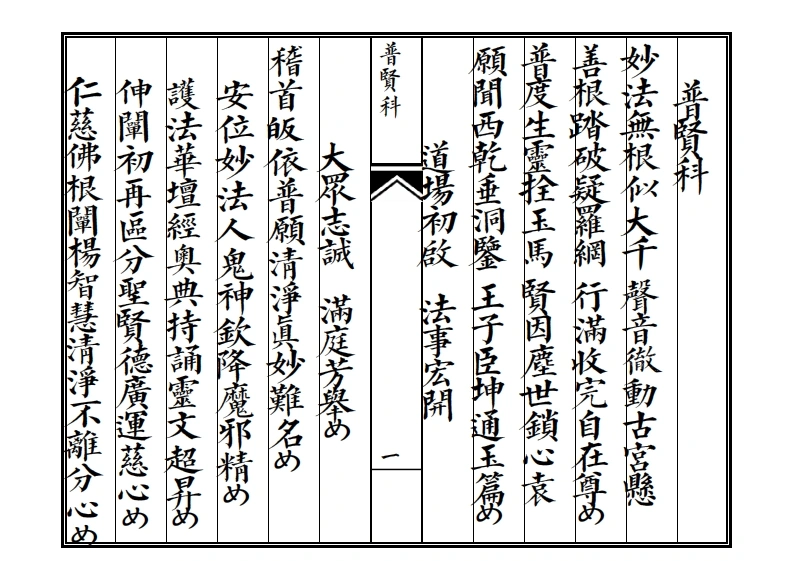 普賢科
妙法無根似大千 聲音徹動古宮懸
善根踏破疑羅網 行滿收完自在尊め
普度生靈拴玉馬 賢因塵世鎖心袁
願聞西乾垂洞鑒 王子臣坤通玉篇め
道場初啟 法事宏開
普賢科
一
大眾志誠 滿庭芳舉め
稽首皈依普願清淨眞妙難名め
安位妙法人鬼神欽降魔邪精め
護法華壇經奧典持誦靈文超昇め
伸闡初再區分聖賢德廣運慈心め
仁慈佛根闡楊智慧清淨不離分心め